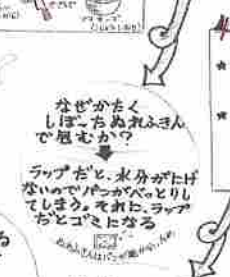 なぜかたく
しぼったぬれふきん
で包むか?
ラップだと、水分がにげ
ないのでパンがべっとりし
てしまう。それに、ラップ
だとゴミになる